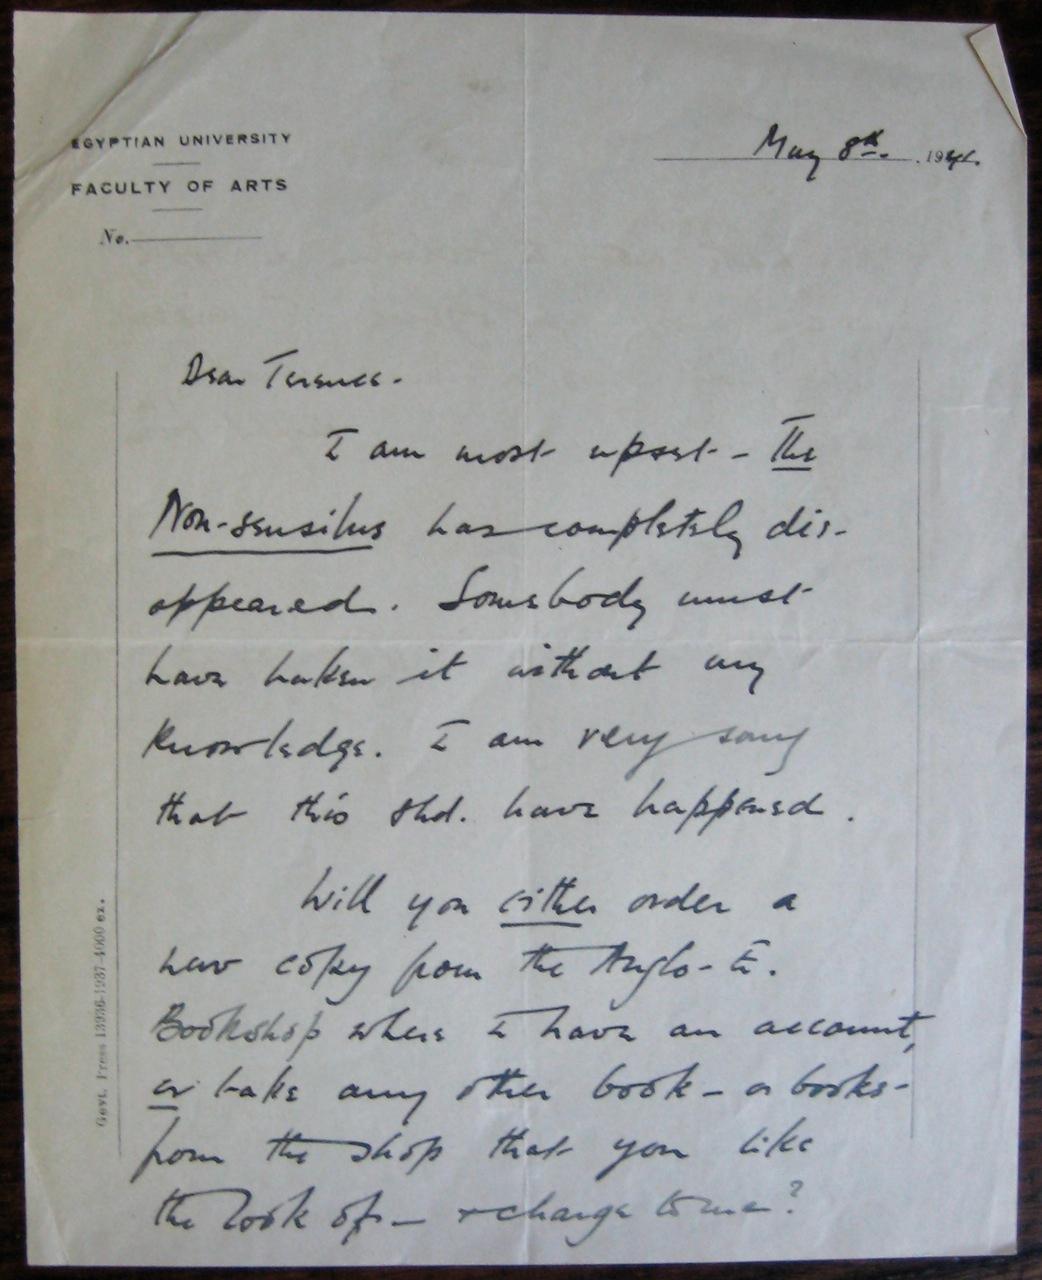 EGYPTIAN UNIVERSITY
FACULTY OF ARTS
No.
May 8th. 1941.
Dear Terence.
I am most upset - The
Non-sensilus has completely dis-
appeared. Somebody must
have taken it without my
knowledge. I am very sorry
that this shd. have happened.
Will you either order a
new copy from the Anglo-E.
Bookshop where I have an account,
or take any other book - or books -
from the shop that you like
the look of - + charge to me?
Govt. Press 13936-1937-4000 ex.